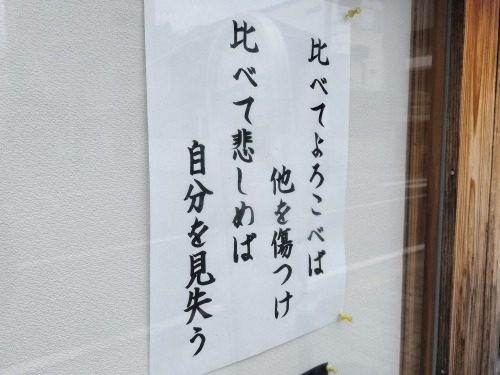 比べてよろこべば
他を傷つけ
比べて悲しめば
自分を見失う